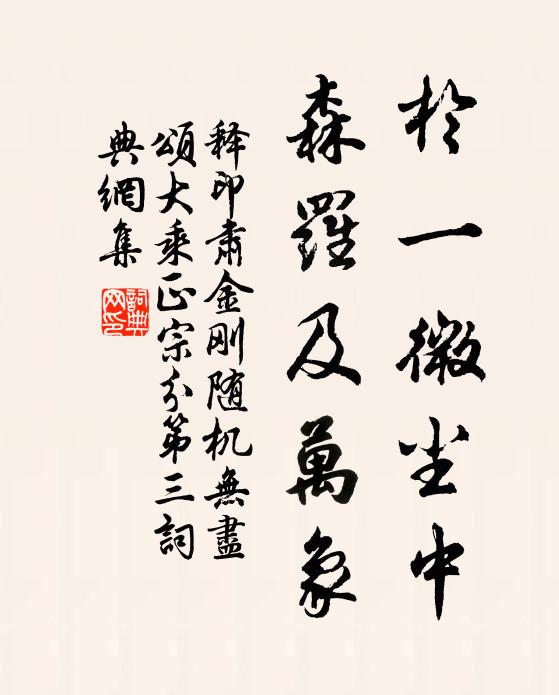 於一微尘中
森羅及萬象
释印肃金刚随机無盡
頌大乘正宗分第三詞
典網集
詞典網印